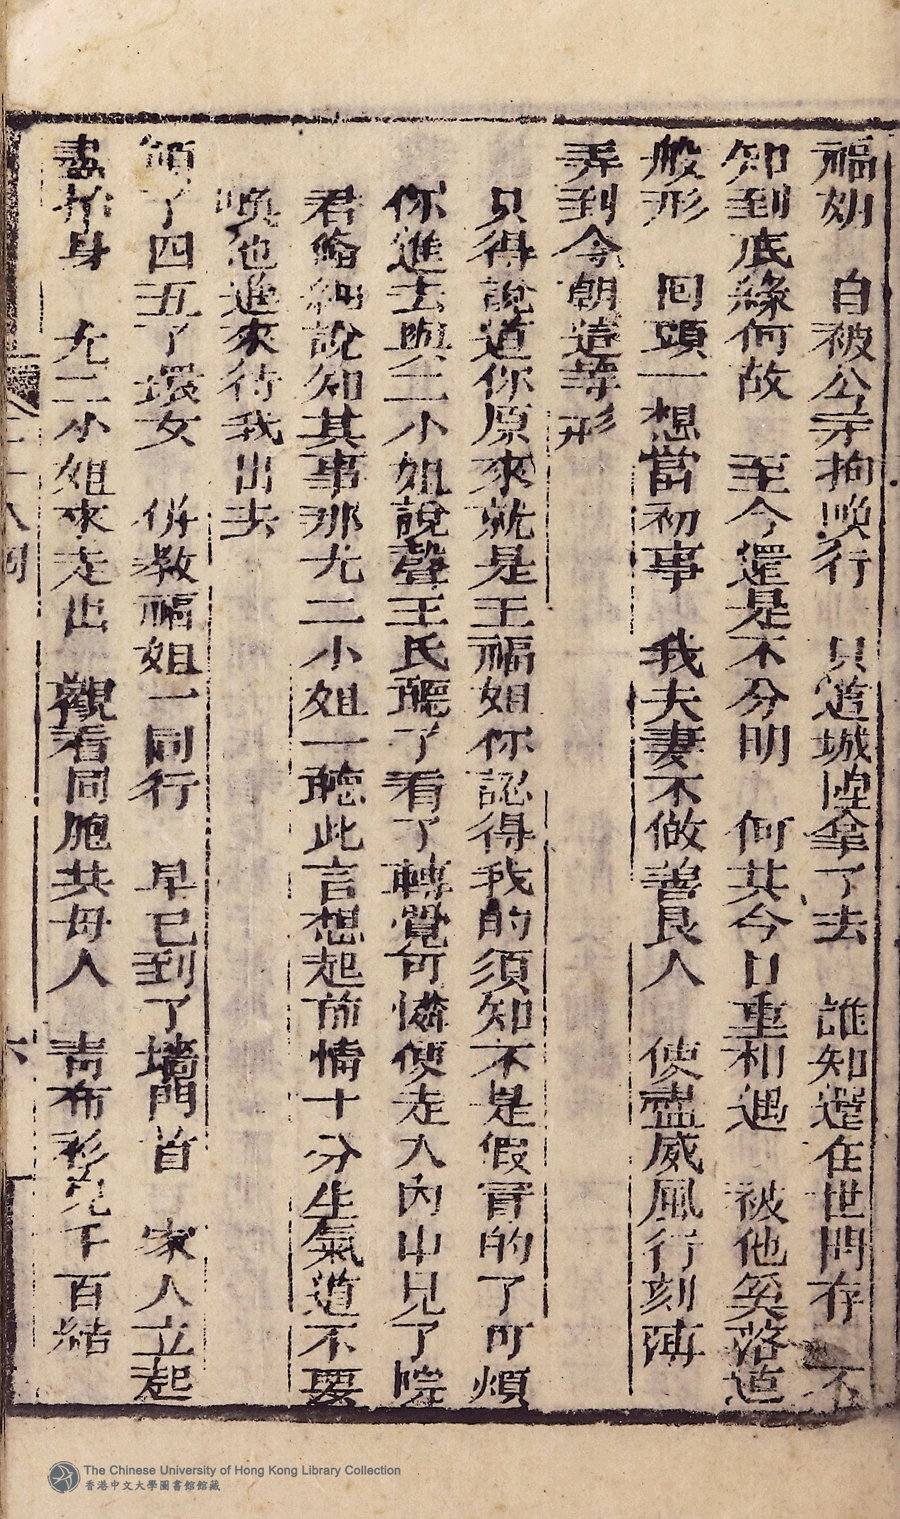 福奶　自被公差拘喚行　只道城隍拿了去　誰知還在世間存　不
知到底緣何故　至今還是不分明　何其今日重相遇　被他奚落這
般形　回頭一想當初事　我夫妻不做善良人　使盡威風行刻薄
弄到今朝這等形
只得說道你原來就是王福姐你認得我的須知不是假冒的了可煩
你進去與二小姐說聲王氏聽了看了轉覺可憐便走入內中見了院
君備細說知其事那尤二小姐一聽此言想起前情十分生氣道不要
喚他進來待我出去
領了四五了環女　併教福姐一同行　早已到了墻門首　家人立起
盡抬身　尤二小姐來走出　觀看同胞共母人　青布衫兒千百結
二十八回
六
The Chinese University of Hong Kong Library Collection
香港中文大學圖書館館藏